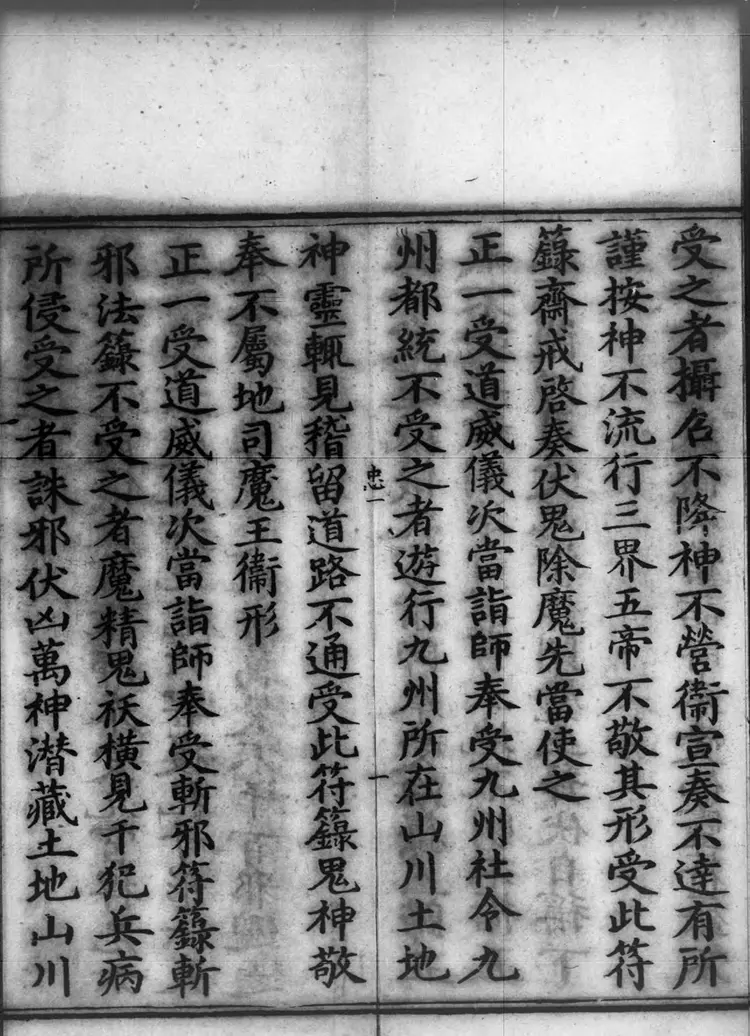 受之者攝召不降神不營衛宣奏不達有所
謹按神不流行三界五帝不敬其形受此符
籙齋戒啓奏伏鬼除魔先當使之
正一受道威儀次當詣師奉受九州社令九
州都統不受之者遊行九州所在山川土地
忠一
一
神靈輒見稽留道路不通受此符籙鬼神敬
奉不屬地司魔王衞形
正一受道威儀次當詣師奉受斬邪符籙斬
邪法籙不受之者魔精鬼祅橫見干犯兵病
所侵受之者誅邪伏凶萬神潛藏土地山川